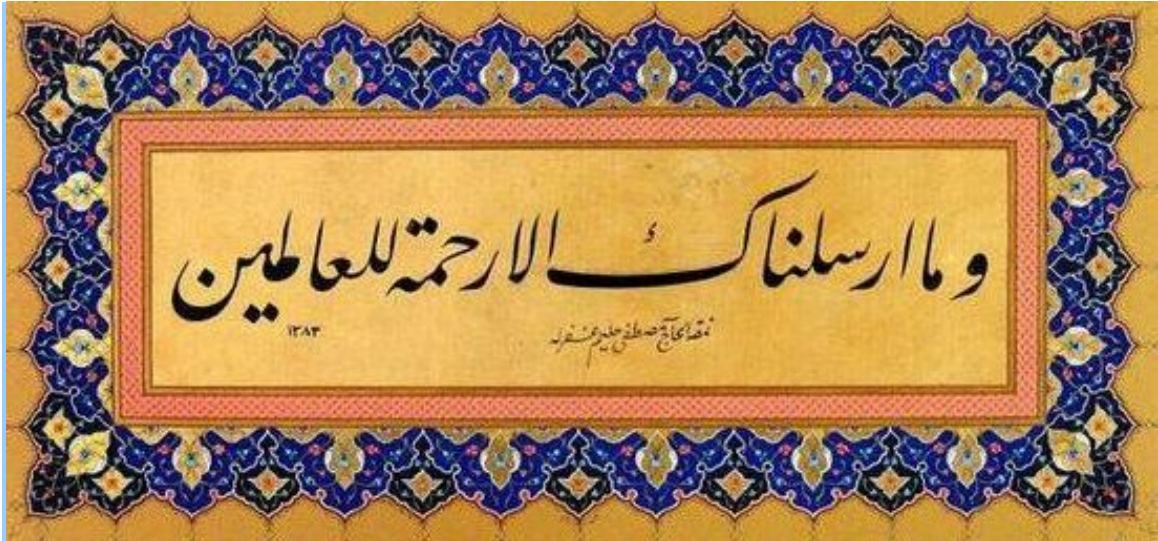 و ما ارسلناك الا رحمة للعالمين
نمقه الحاج مصطفى حليم غفرله
١٣٨٣